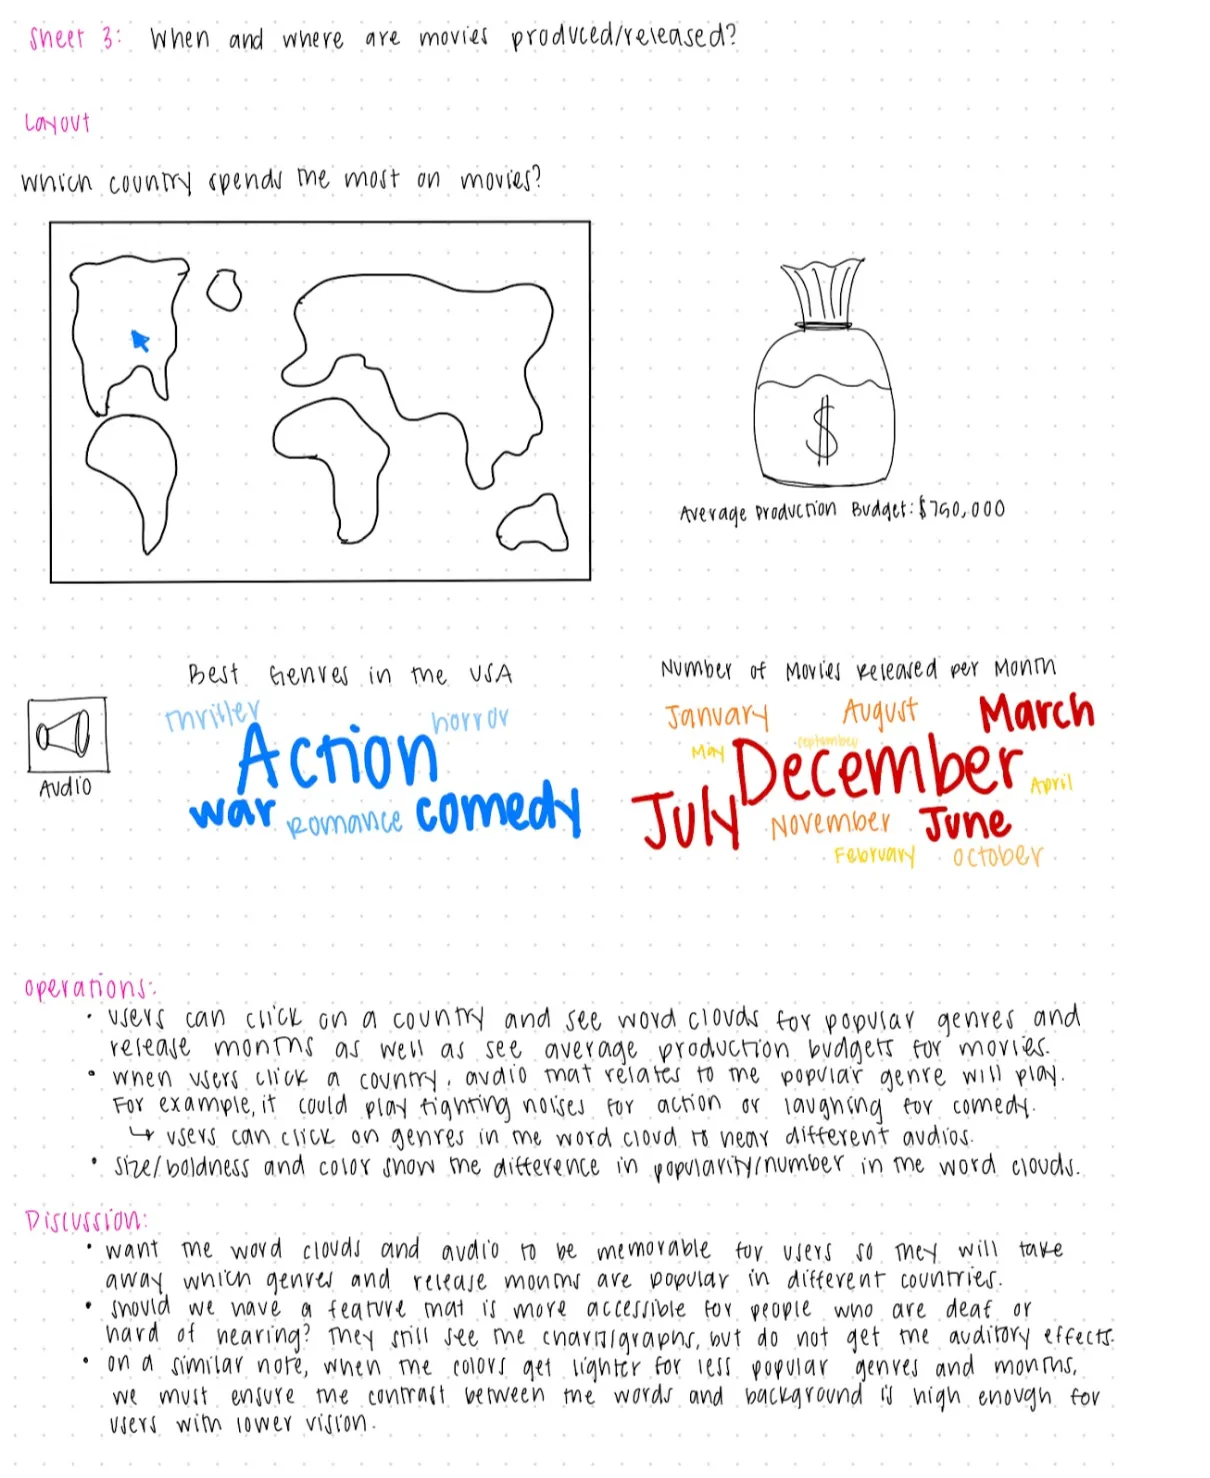 Sheet 3: When and where are movies produced/released?
Layout
Which country spends the most on movies?
$
Average Production Budget: $750,000
Best Genres in the USA
Thriller
horror
Action
war
Romance
comedy
Audio
Number of Movies Released per Month
January
August
March
May
September
December
April
July
November
June
February
October
Operations:
• Users can click on a country and see word clouds for popular genres and
release months as well as see average production budgets for movies.
• When users click a country, audio that relates to the popular genre will play.
For example, it could play fighting noises for action or laughing for comedy.
↳ Users can click on genres in the word cloud to hear different audios.
• Size/boldness and color show the difference in popularity/number in the word clouds.
Discussion:
• Want the word clouds and audio to be memorable for users so they will take
away which genres and release months are popular in different countries.
• Should we have a feature that is more accessible for people who are deaf or
hard of hearing? They still see the charts/graphs, but do not get the auditory effects.
• On a similar note, when the colors get lighter for less popular genres and months,
we must ensure the contrast between the words and background is high enough for
users with lower vision.